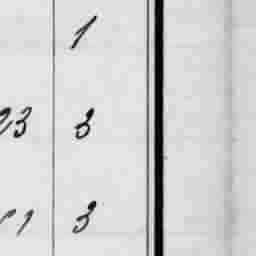 1
23 3
3